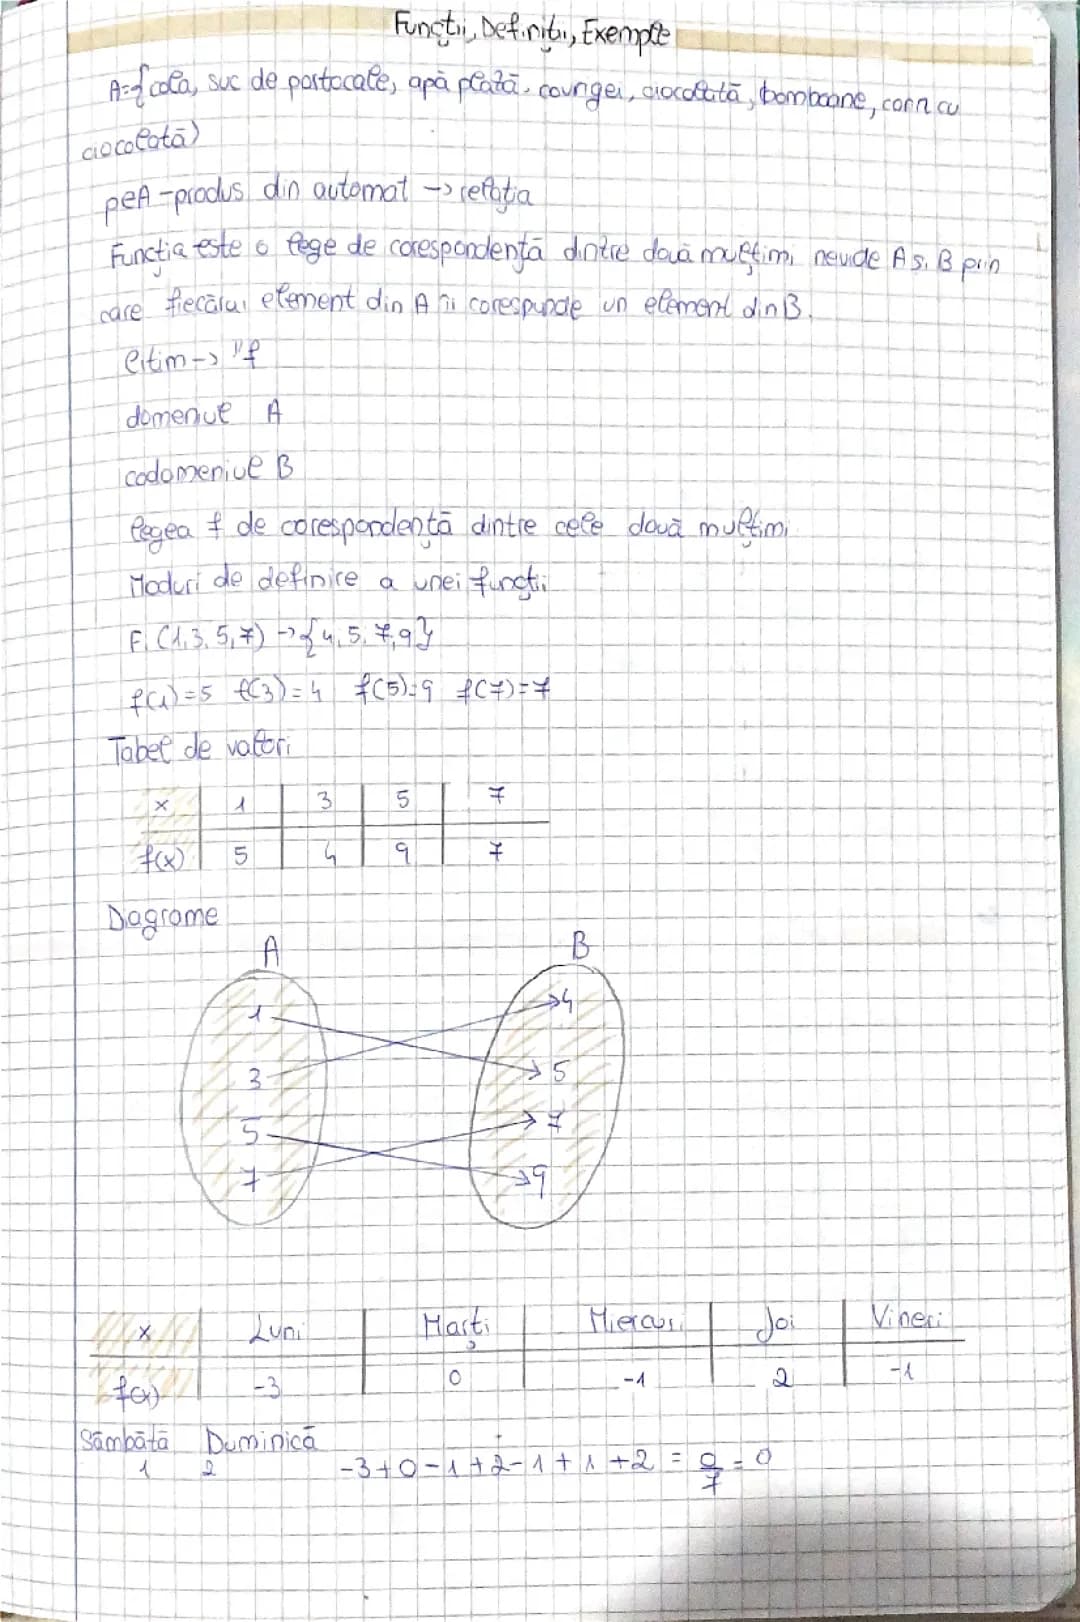 Funcții, Definiții, Exemple
A={cola, suc de portocale, apă plată, covrigei, ciocolată, bomboane, corn cu
ciocolată)
p∈A - produs din automat → relația
Funcția este o lege de corespondență dintre două mulțimi nevide A și B prin
care fiecărui element din A îi corespunde un element din B.
citim → "f
domeniul A
codomeniul B
legea f de corespondență dintre cele două mulțimi
Moduri de definire a unei funcții
F: (1,3,5,7) → {4,5,7,9}
f(1)=5 f(3)=4 f(5)=9 f(7)=7
Tabel de valori
x 1 3 5 7
f(x) 5 4 9 7
Diagrame
A B
1 4
3 5
5 7
7 9
x Luni Marți Miercuri Joi Vineri
f(x) -3 0 -1 2 -1
Sâmbătă Duminică
1 2 -3+0-1+2-1+1+2 = 0/7 = 0